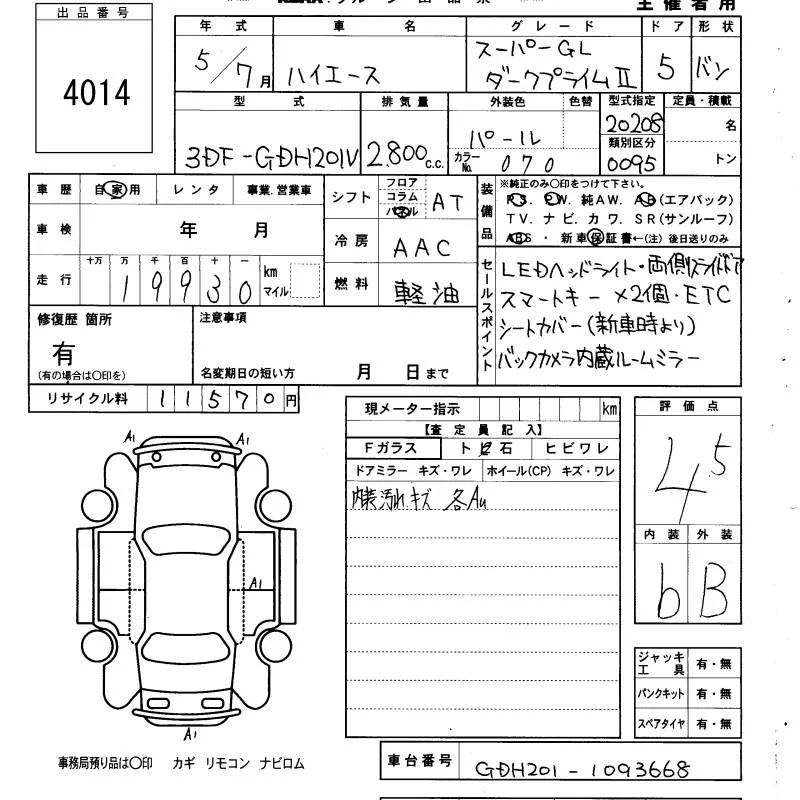 主催者用
出品番号
4014
年式 車名 グレード ドア 形状
5/7月 ハイエース スーパーGL ダークプライムⅡ 5 バン
型式 排気量 外装色 色替 型式指定 定員・積載
3DF-GDH201V 2.800c.c. パール 20208 名
カラーNo. 070 類別区分 0095 トン
車歴 自家用 レンタ 事業.営業車
車検 年 月
走行 十万 万 千 百 十 一
19930 km マイル
シフト フロア コラム パネル AT
冷房 AAC
燃料 軽油
装備品 ※純正のみ〇印をつけて下さい。
P.S. P.W. 純AW. AB(エアバック)
TV. ナビ. カワ. SR(サンルーフ)
ABS ・ 新車保証書←(注) 後日送りのみ
セールスポイント
LEDヘッドライト・両側スライドドア
スマートキー ×2個・ETC
シートカバー(新車時より)
バックカメラ内蔵ルームミラー
修復歴 箇所
有
(有の場合は〇印を)
注意事項
名変期日の短い方 月 日まで
リサイクル料 11570円
現メーター指示 km
【査定員記入】
Fガラス ト ビ 石 ヒビワレ
ドアミラー キズ・ワレ ホイール(CP) キズ・ワレ
内装汚れキズ 各Au
評価点
4.5
内装 外装
b B
A1 A1
A1
A1
ジャッキ工具 有・無
パンクキット 有・無
スペアタイヤ 有・無
事務局預り品は〇印 カギ リモコン ナビロム
車台番号 GDH201-1093668